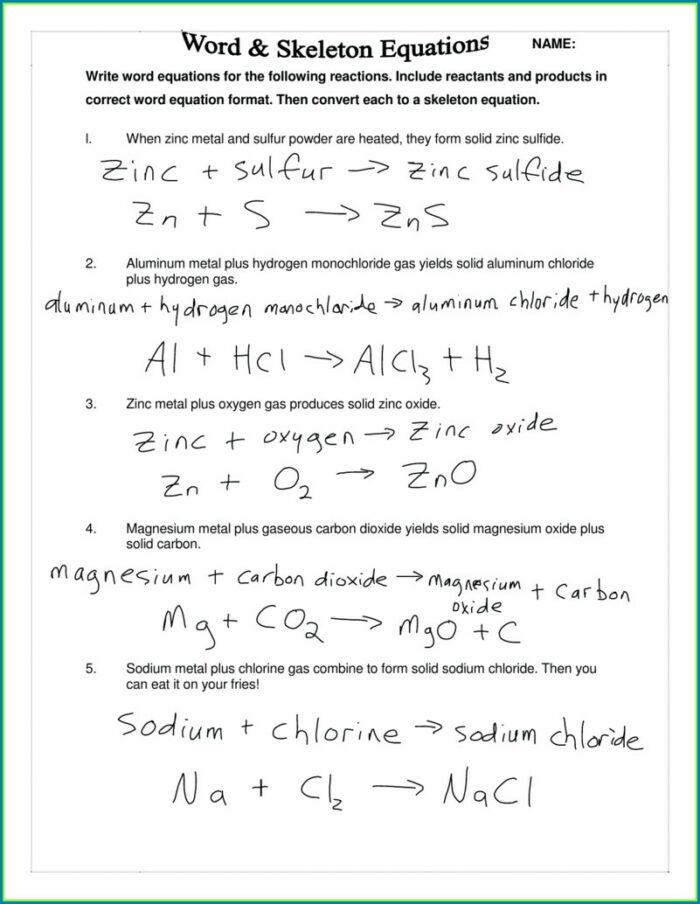 Word & Skeleton Equations NAME:
Write word equations for the following reactions. Include reactants and products in
correct word equation format. Then convert each to a skeleton equation.
I. When zinc metal and sulfur powder are heated, they form solid zinc sulfide.
Zinc + sulfur → Zinc sulfide
Zn + S → ZnS
2. Aluminum metal plus hydrogen monochloride gas yields solid aluminum chloride
plus hydrogen gas.
aluminum + hydrogen monochloride → aluminum chloride + hydrogen
Al + HCl → AlCl₃ + H₂
3. Zinc metal plus oxygen gas produces solid zinc oxide.
Zinc + oxygen → Zinc oxide
Zn + O₂ → ZnO
4. Magnesium metal plus gaseous carbon dioxide yields solid magnesium oxide plus
solid carbon.
magnesium + carbon dioxide → magnesium + carbon
oxide
Mg + CO₂ → MgO + C
5. Sodium metal plus chlorine gas combine to form solid sodium chloride. Then you
can eat it on your fries!
Sodium + chlorine → sodium chloride
Na + Cl₂ → NaCl